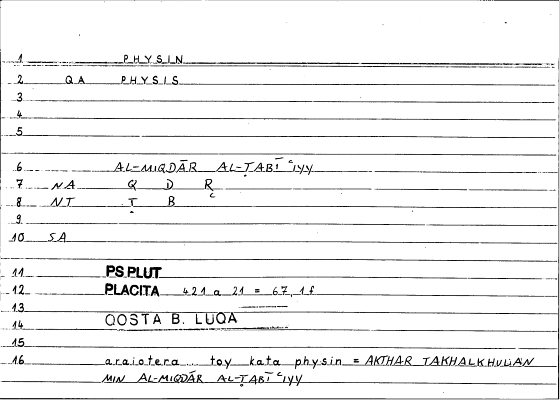 1 PHYSIN
2 QA PHYSIS
3
4
5
6 AL-MIQDĀR AL-ṬABĪʿIYY
7 NA Q D R
8 NT Ṭ B ʿ
9
10 SA
11 PS PLUT
12 PLACITA 421 a 21 = 67, 1f
13
14 QOSTA B. LUQA
15
16 araiotera toy kata physin = AKTHAR TAKHALKHULAN
MIN AL-MIQDĀR AL-ṬABĪʿIYY